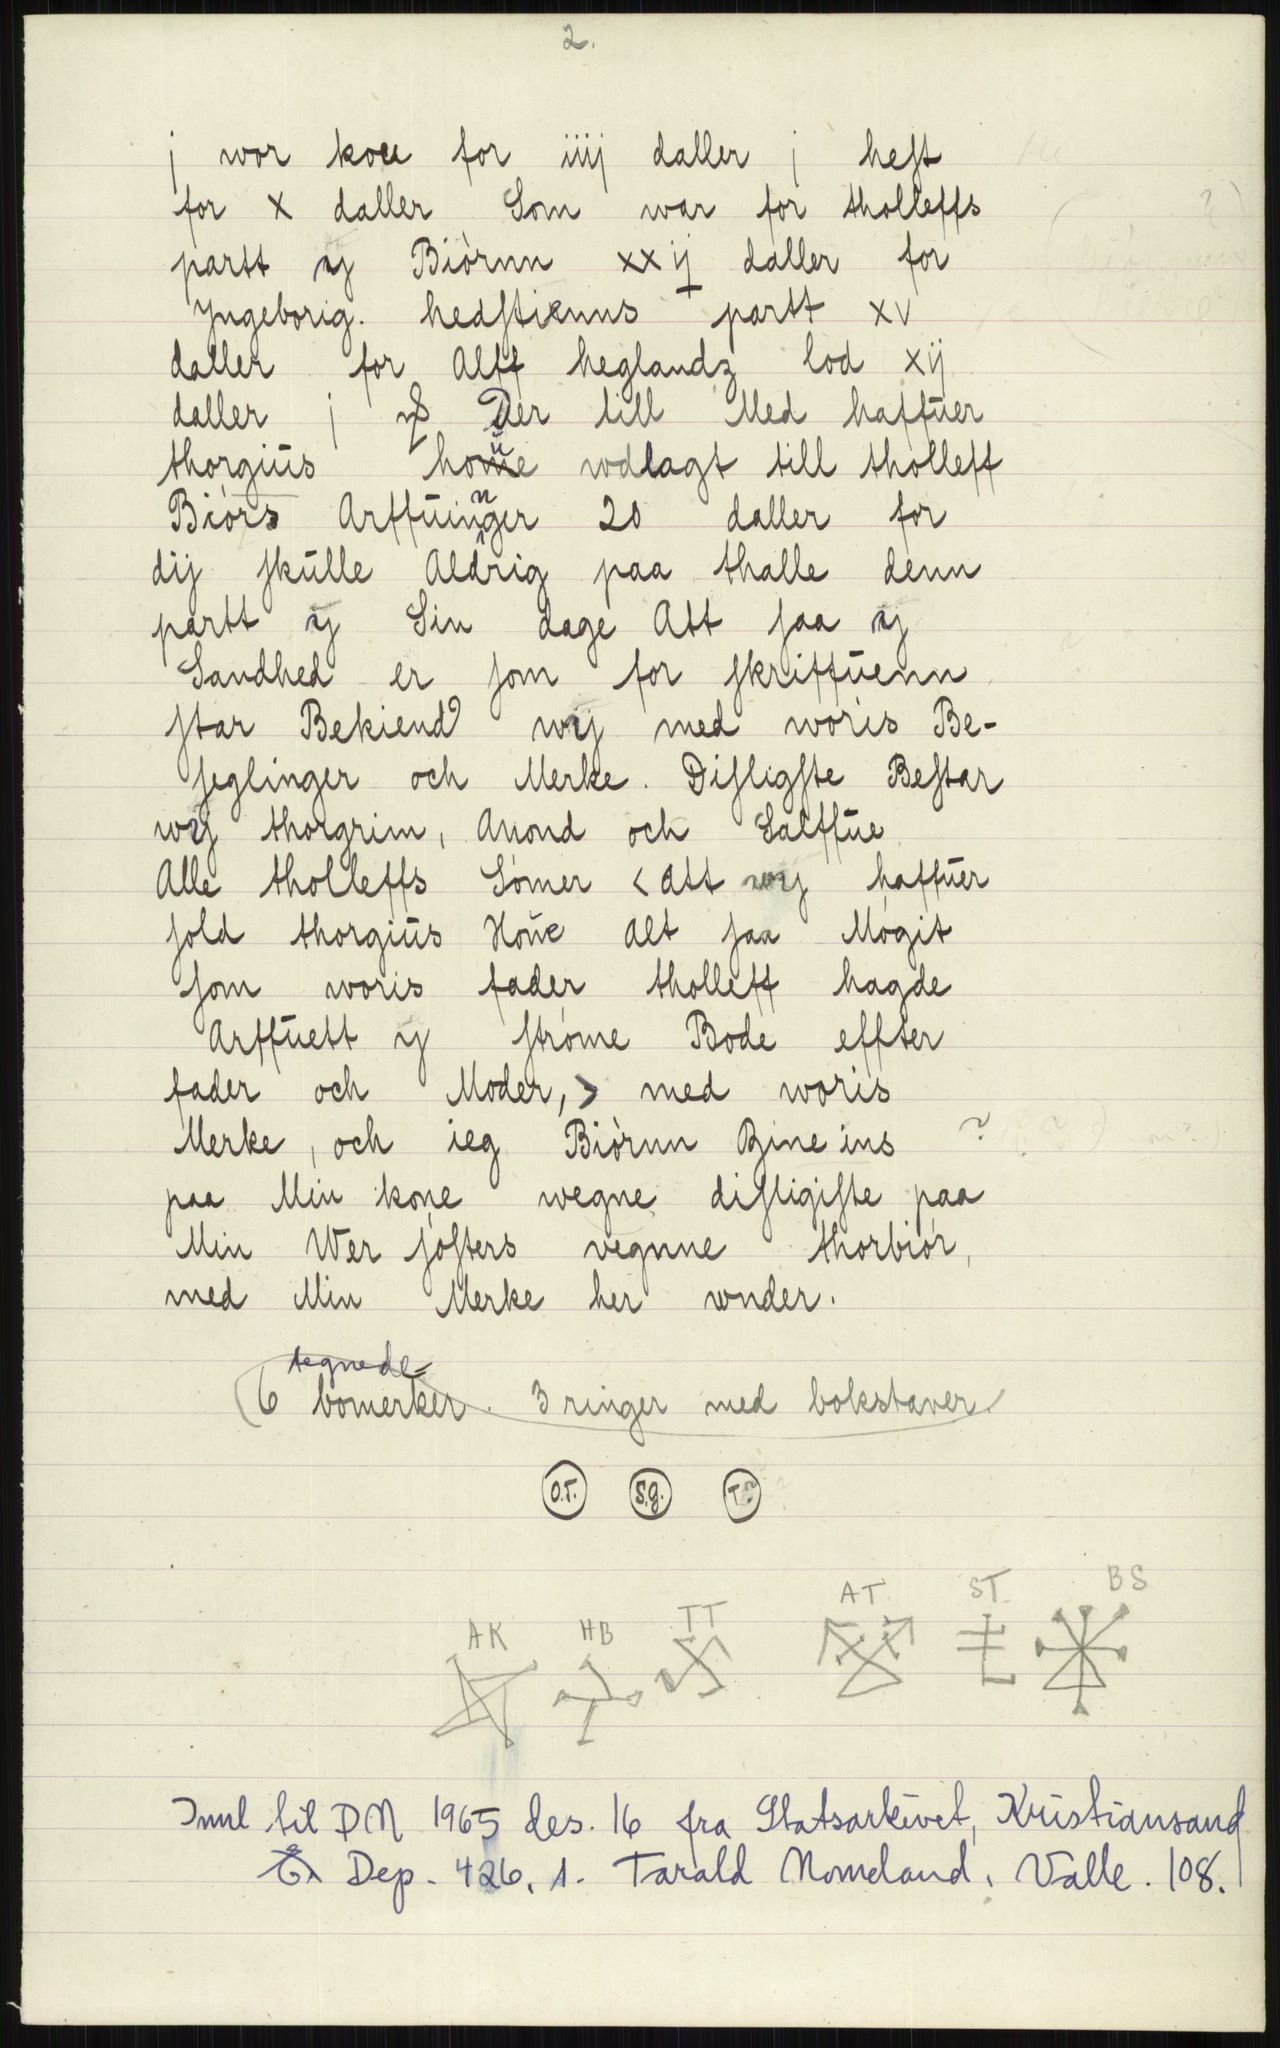 2.
j wor koee for iiij daller j heſt
for x daller Som war for tholleffs
partt ÿ Biörnn xxij daller for
Yngeborig. hedſtienns partt xv
daller for Alff heglandz lod xij
daller j Der till Med haffüer
thorgiüs hoüe wdlagt till tholleff
Biörs Arffüinnger 20 daller for
dij ſkülle Aldrig paa thalle denn
partt ÿ Sin dage Att ſaa ÿ
Sandhed er ſom for ſkriffüenn
ſtar Bekiend wij med woris Be-
ſeglinger och Merke. Diſligſte Beſtar
wij thorgrim, Anond och Salffüe
Alle tholleffs Sömer < att wij haffüer
ſold thorgiüs Hoüe alt ſaa Mögit
ſom woris fader tholleff hagde
Arffüett ÿ ſtröme Bode effter
fader och Moder, > med woris
Merke, och ieg Biörnn ins ?
paa Min kone wegne diſligiſte paa
Min Wer ſöſters vegnne thorbiör,
med Min Merke her wnder.
tegnede
(6 bomerker. 3 ringer med bokstaver)
O.T. S.G. T.
AK HB TT AT ST BS
Innl til DN 1965 des. 16 fra Statsarkivet, Kristiansand
Dep. 426, 1. Tarald Nomeland, Valle. 108.